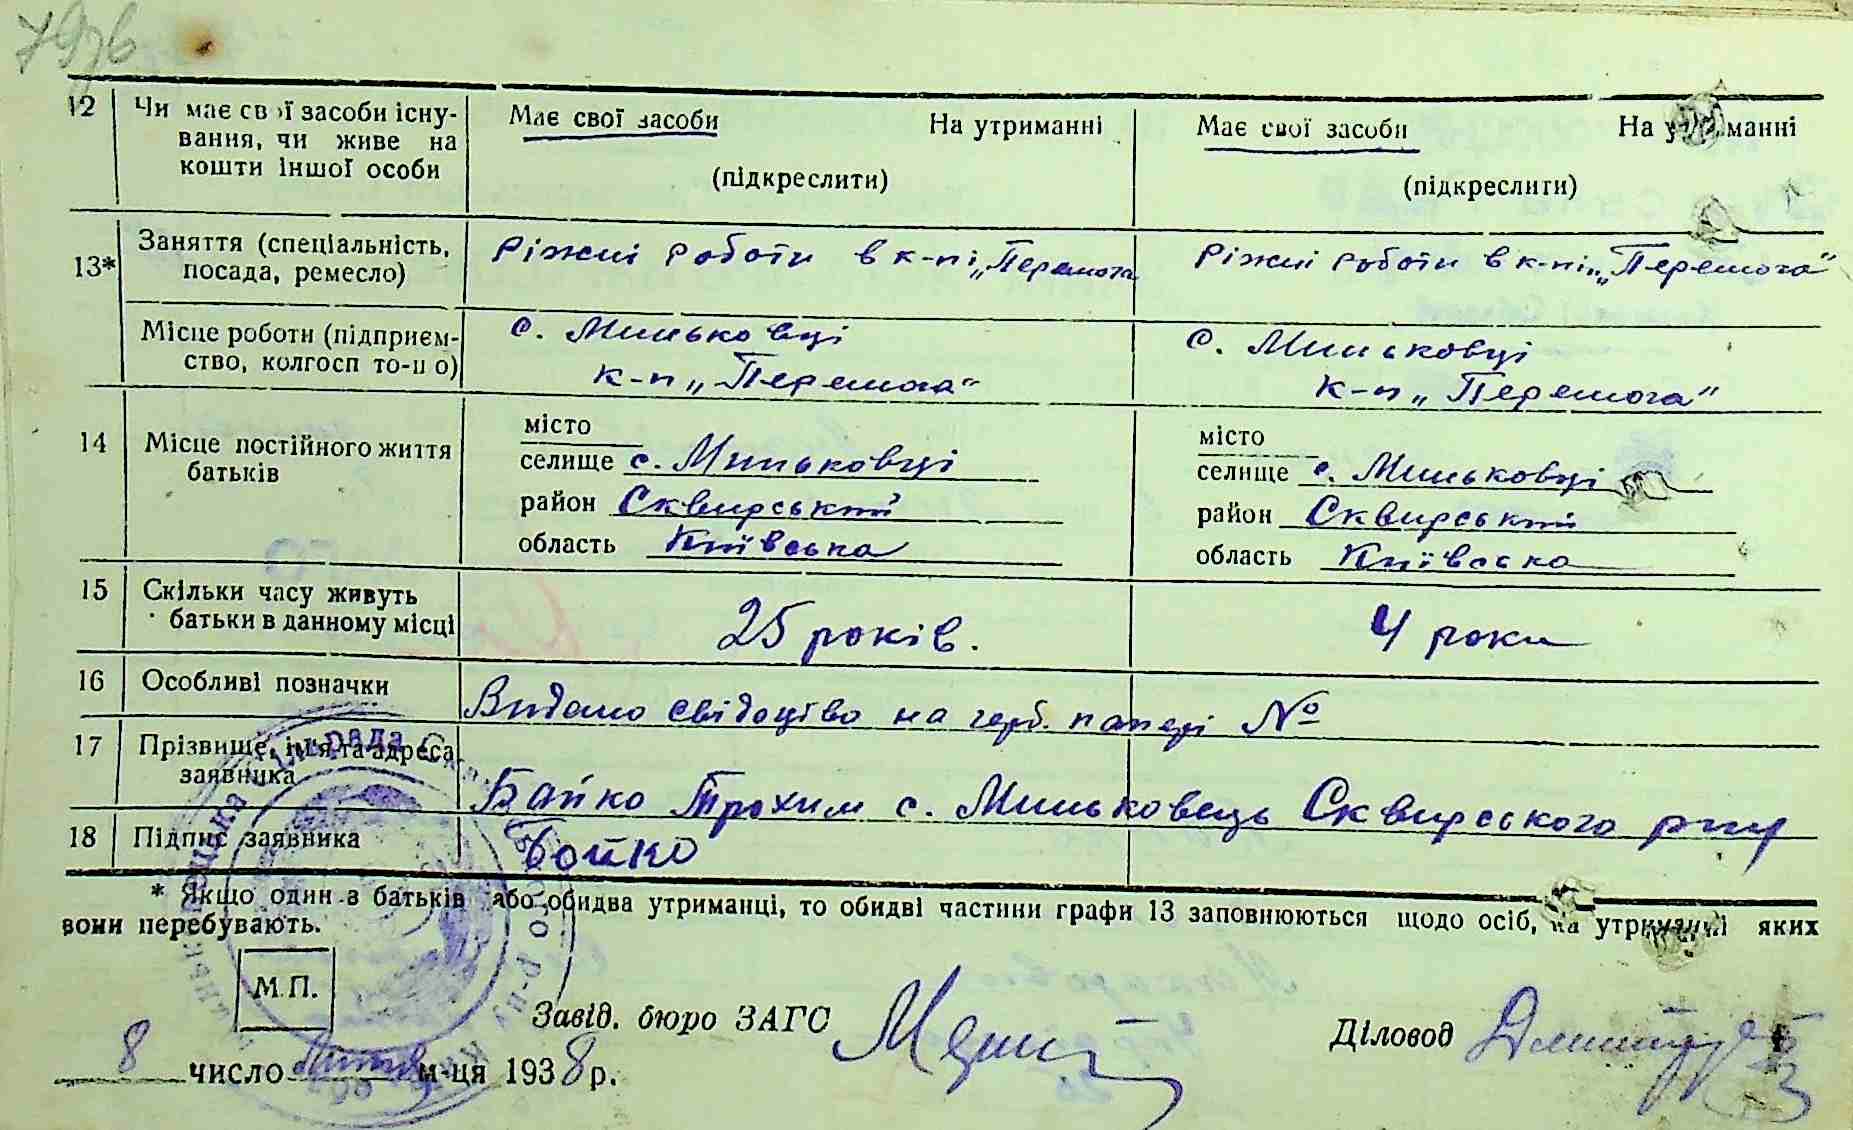 12 Чи має свої засоби існу- Має свої засоби На утриманні Має свої засоби На утриманні
вання, чи живе на
кошти іншої особи (підкреслити) (підкреслити)
13* Заняття (спеціальність, Ріжні роботи в к-пі „Перемога Ріжні роботи в к-пі „Перемога"
посада, ремесло)
Місце роботи (підприєм- с. Миньковці с. Миньковці
ство, колгосп то-що) к-п „Перемога" к-п „Перемога"
14 Місце постійного життя місто місто
батьків селище с. Миньковці селище с. Миньковці
район Сквирський район Сквирський
область Київська область Київська
15 Скільки часу живуть
батьки в данному місці 25 років. 4 роки
16 Особливі позначки Видано свідоцтво на герб. папері №
17 Прізвище, ім'я та адреса
заявника Бойко Трохим с. Миньковець Сквирського р-ну
18 Підпис заявника Бойко
* Якщо один з батьків або обидва утриманці, то обидві частини графи 13 заповнюються щодо осіб, на утриманні яких
вони перебувають.
М.П.
Завід. бюро ЗАГС Діловод
8 число м-ця 1938 р.